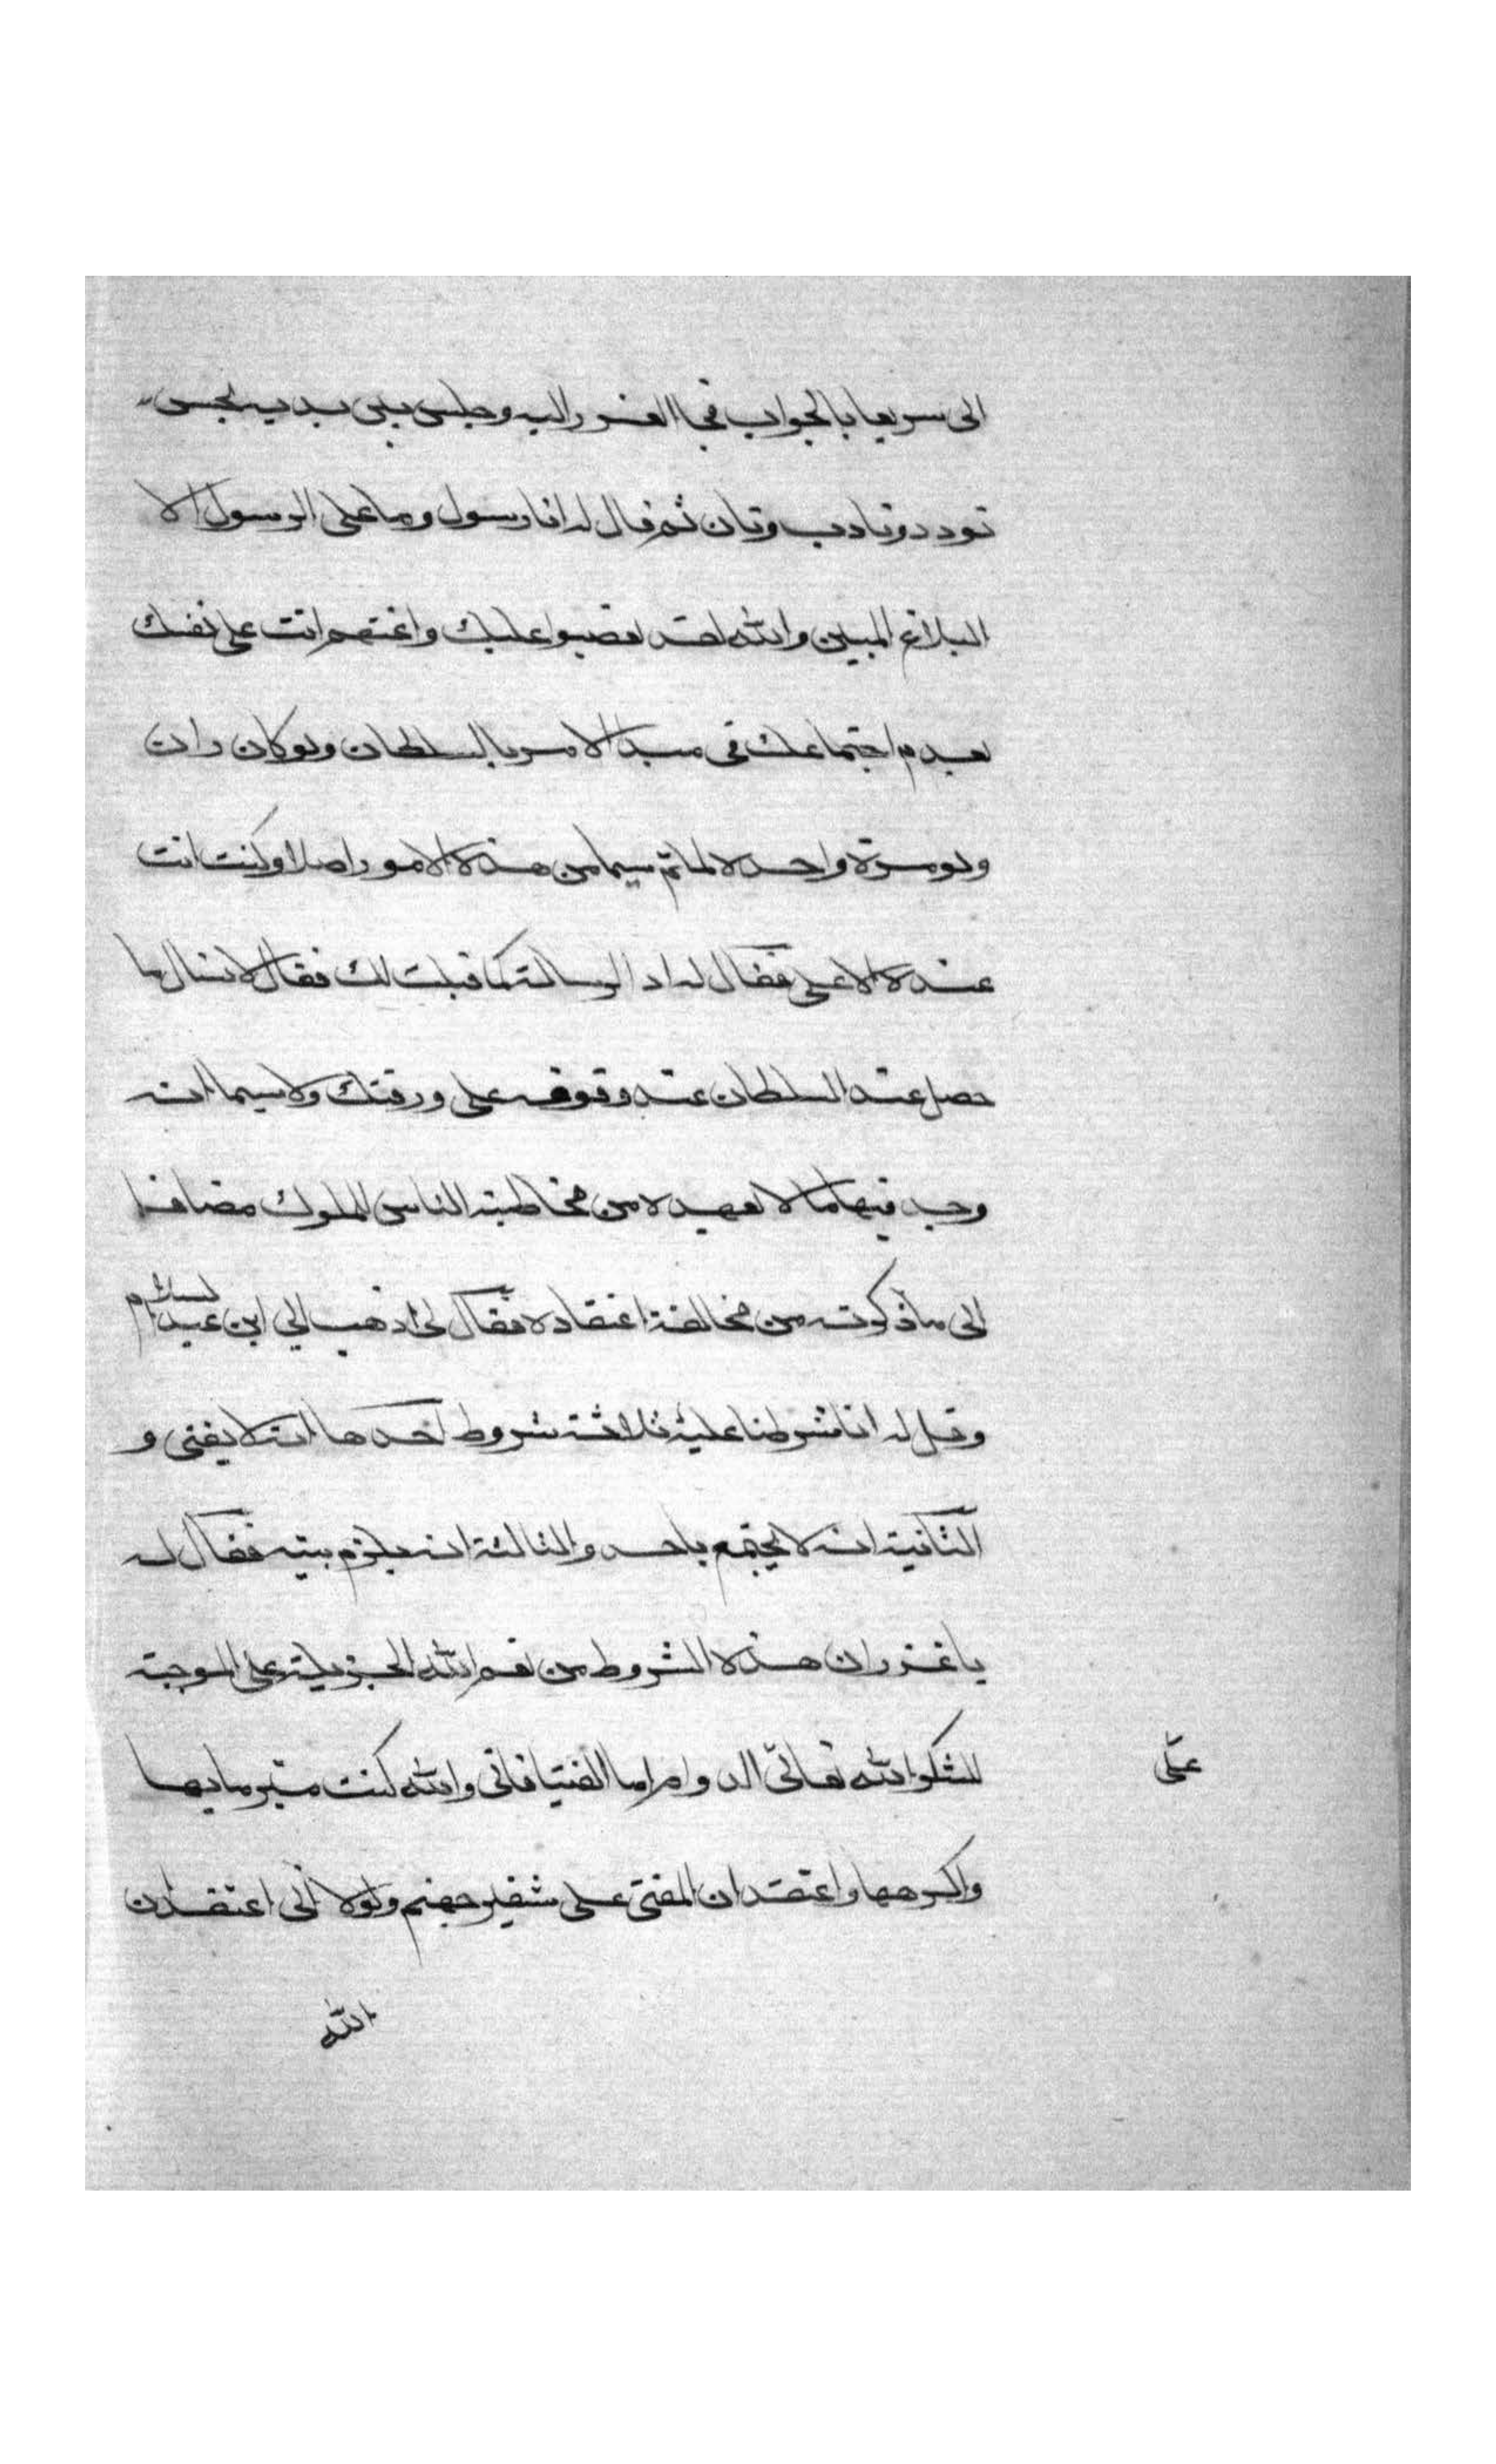 الى سريعا بالجواب فجا الغرز اليه وجلس بين يديه بحسن
تودد وتادب وتان ثم قال له انا رسول وما على الرسول الا
البلاغ المبين والله لقد تعصبوا عليك واغتهم انت على نفسك
بعدم اجتماعك فى مبدا الامر بالسلطان ولو كان راك
ولو مرة واحده لما تم سيما من هذه الامور اصلا وكنت انت
عنده الاعلى فقال له اد الرسالة كما قيلت لك فقال لا تسال ما
حصل عند السلطان عند وقوفه على ورقتك ولا سيما انه
وجد فيها ما لا يعهده من مخاطبة الناس الملوك مضافا
الى ما ذكرته من مخالفة اعتقاده فقال لى اذهب الي ابن عبد السلام
وقل له انا شرطنا عليه ثلاثة شروط احدها انه لا يفتى و
الثانية انه لا يجتمع باحد والثالثة انه يلزم بيته فقال له
يا غرز ان هذه الشروط من نعم الله الجزيلة على الموجبة
للشكر الله تعالى الدوام اما الفتيا فانى والله كنت متبرما بها
على
واكرهها واعتقد ان المفتى على شفير جهنم ولولا انى اعتقد ان
الله